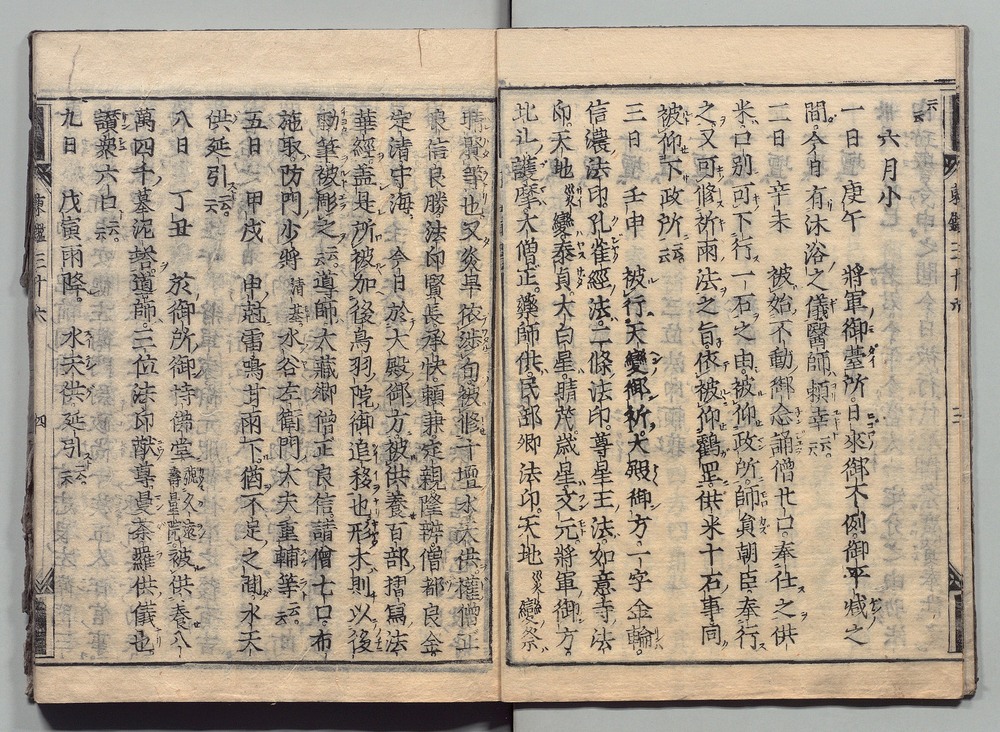 云云
六月小
一日 庚午 將軍御墓所。日來御不例。御平減之
間。今日有沐浴之儀。醫師賴幸云云。
二日 辛未 被始不動御念誦。僧廿口。奉仕之。供
米口別可下行一石之由。被仰政所。師員朝臣奉行
之。又可修祈雨法之旨。依被仰鶴岡。供米十石事同
被仰下政所云云。
三日 壬申 被行天變御祈。大殿御方。一字金輪。
信濃法印。孔雀經法。二條法印。尊星王法。如意寺法
印。天地災變泰貞。大白星。晴茂。歲星。文元。將軍御方。
北斗護摩。大僧正。藥師供。民部卿法印。天地災變祭。
晴 等也。又炎旱依涉旬。被修十壇水天供。權僧正
良信。良勝法印。賢長。承快。賴兼。定親。隆辨僧都。良全。
定清。守海。今日於大殿御方。被供養百部摺寫法
華經。盖是所被加後鳥羽院御追移也。形木則以後
勅筆被彫之云云。導師大藏卿僧正良信。諸僧七口。布
施取。防門少將淸基。水谷左衛門大夫重輔等云云。
五日 甲戌 申尅。雷鳴。甘雨下。猶不足之間。水天
供延引云云。
八日 丁丑 於御所御持佛堂號久遠壽量院。被供養八
萬四千基泥塔。導師。二位法印猷尊。曼荼羅供儀也。
讚衆六口云云。
九日 戊寅 雨降。水天供延引云云。
東鑑三十六 二
東鑑三十六 四